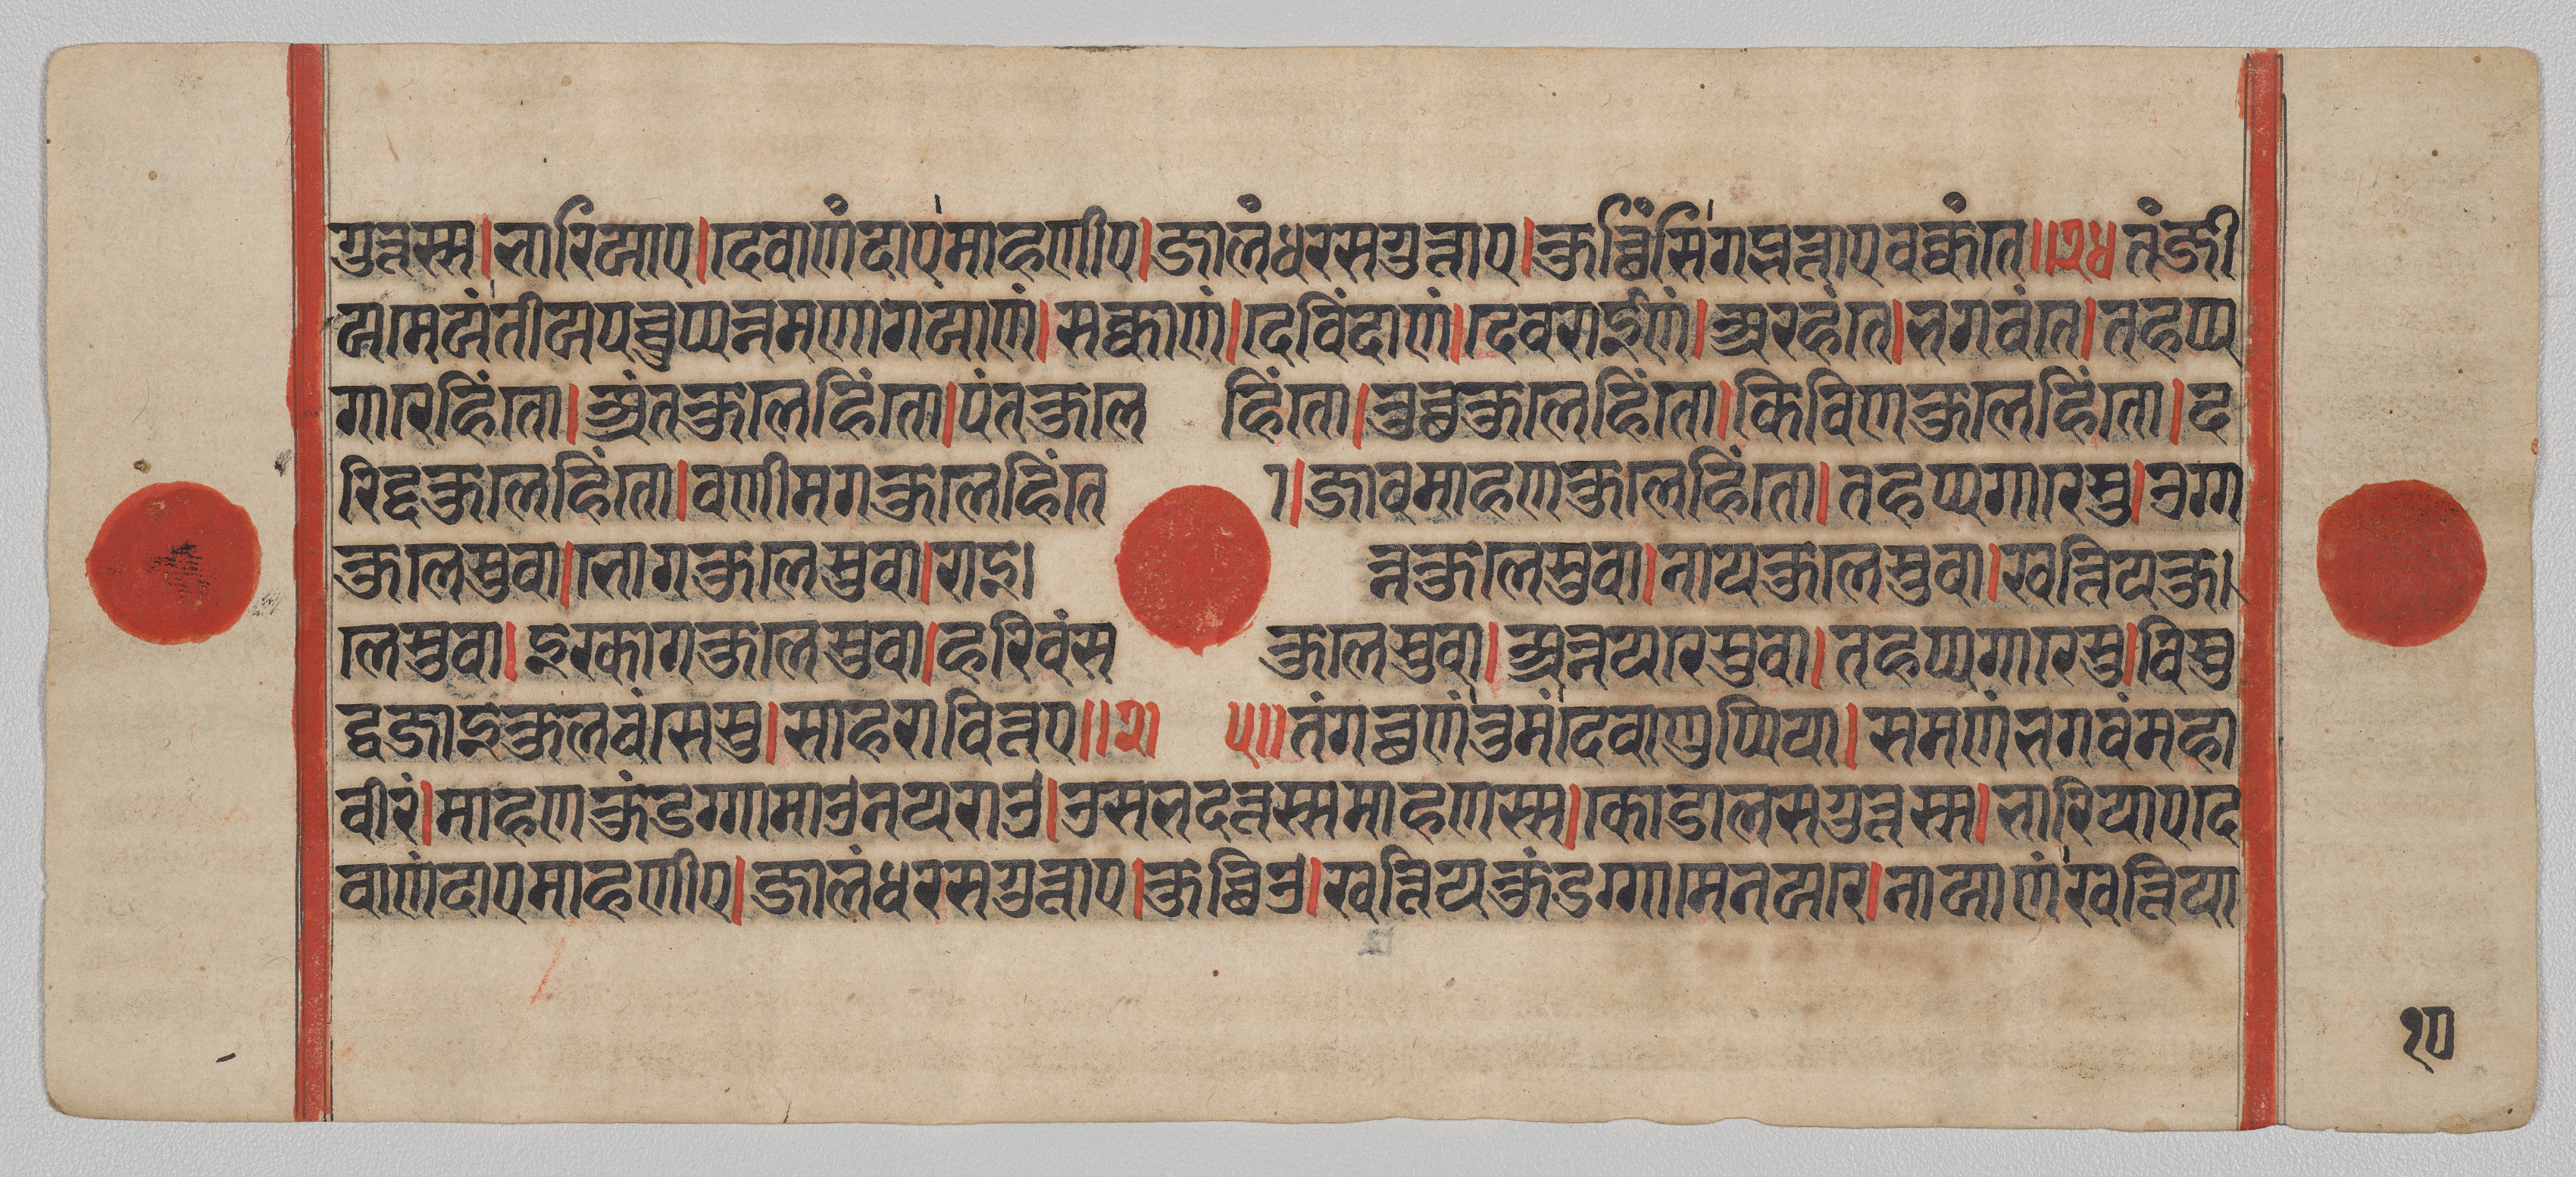 गुत्तस्स।भारिआए।देवाणंदाएमाहणीए।जालंधरसगुत्ताए।कुच्छिंसिगप्भत्ताएवक्कंते॥२४तंजी
अमेअंतीअपच्चुप्पन्नमणागआणं।सक्काणं।देविंदाणं।देवराईणं।अरहंते।भगवंते।तहप्प
गारेहिंतो।अंतकुलेहिंतो।पंतकुले हिंतो।तुच्छकुलेहिंतो।किविणकुलेहिंतो।द
रिद्दकुलेहिंतो।वणीमगकुलेहिंत ो।जावमाहणकुलेहिंतो।तहप्पगारेसु।उग्ग
कुलेसुवा।भोगकुलेसुवा।राइ। न्नकुलेसुवा।नायकुलेसुवा।खत्तियकु।
लेसुवा।इरकागकुलेसुवा।हरिवंस कुलेसुवा।अन्नयरेसुवा।तहप्पगारेसु।विसु
द्धजाइकुलवंसेसु।साहरावित्तए॥२ ५॥तंगच्छणंतुमंदेवाणुप्पिया।समणंभगवंमहा
वीरं।माहणकुंडग्गामाउनयराउ।उसभदत्तस्समाहणस्स।कोडालसगुत्तस्स।भारियाएदे
वाणंदाएमाहणीए।जालंधरसगुत्ताए।कुच्छिउ।खत्तियकुंडग्गामेनअरे।नाआणंखत्तिया
१०